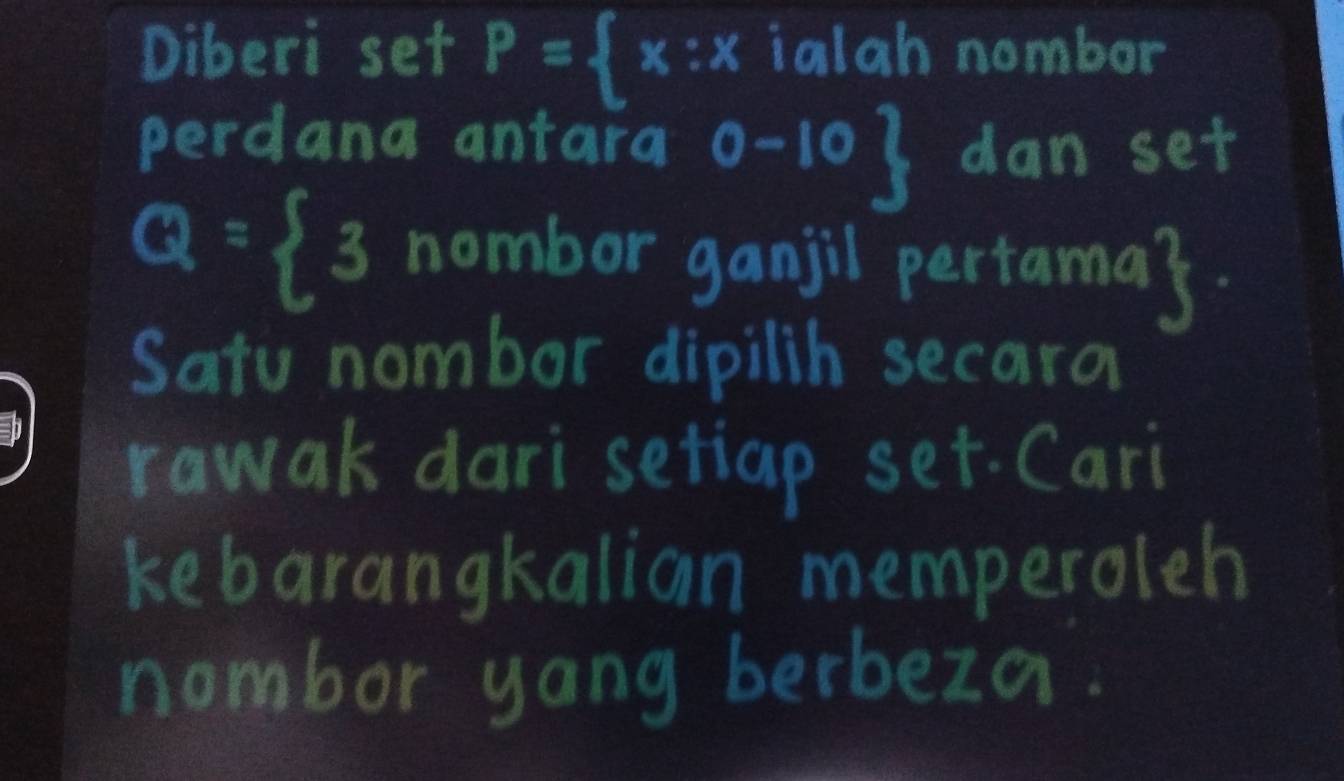 Diberi set P = { x : x ialah nombor
perdana antara 0-10 } dan set
Q = { 3 nombor ganjil pertama }.
Satu nombor dipilih secara
rawak dari setiap set. Cari
kebarangkalian memperoleh
nombor yang berbeza.